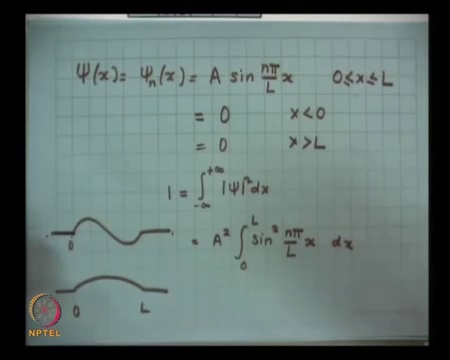 Ψ(x) = Ψₙ(x) = A sin nπ/L x    0≤x≤L
= 0    x<0
= 0    x>L
1 = ∫_{-∞}^{+∞} |Ψ|² dx
= A² ∫_0^L sin² nπ/L x dx
0
0    L
NPTEL